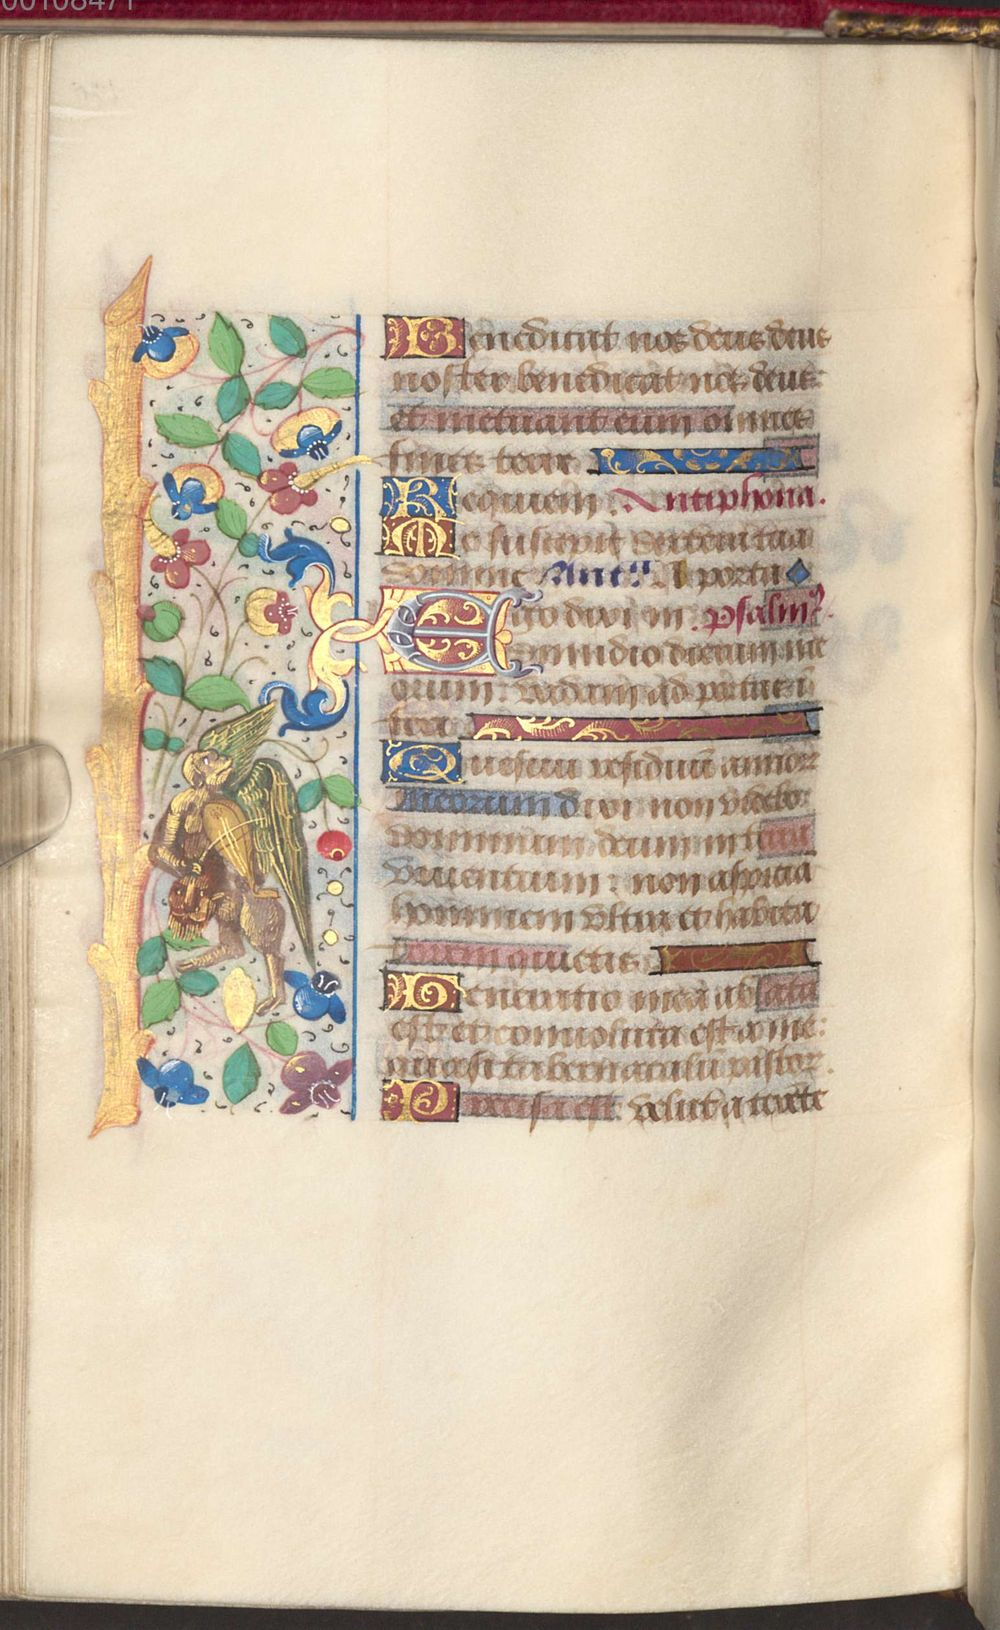 00108471
Benedicat nos deus deus
noster benedicat nos deus
et metuant eum omnes
fines terre
Requiem. Antiphona.
Me suscepit dextera tua
domine Ant. A porta
Ego dixi in. psalm9.
dimidio dierum me
orum: vadam ad portas i
feri
Quesiui residuū annorꝝ
meorum dixi non videbo
dominum deum in terra
viuentium: non aspiciā
hominem vltra et habita
torem quietis
Generatio mea ablata
est et conuoluta est a me:
quasi tabernaculū pastorꝝ.
Precisa est velut a texēte